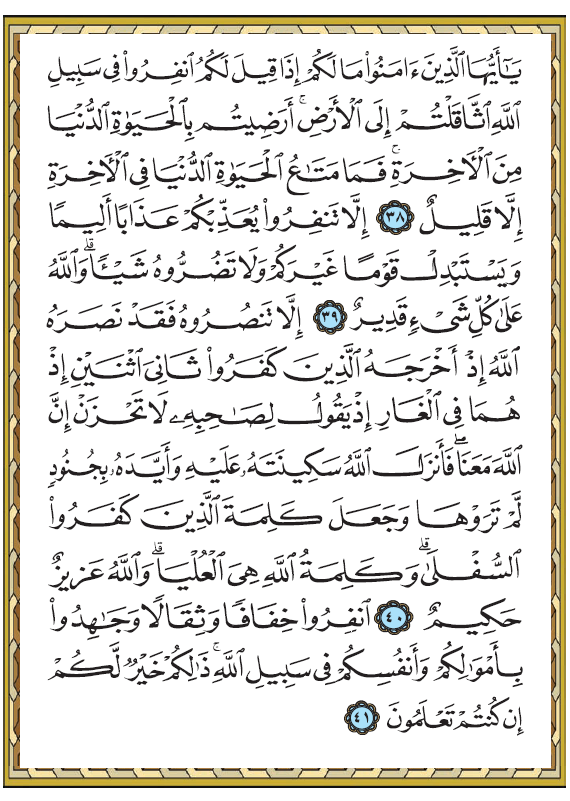 يَـٰٓأَيُّهَا ٱلَّذِينَ ءَامَنُوا۟ مَا لَكُمْ إِذَا قِيلَ لَكُمُ ٱنفِرُوا۟ فِى سَبِيلِ
ٱللَّهِ ٱثَّاقَلْتُمْ إِلَى ٱلْأَرْضِ ۚ أَرَضِيتُم بِٱلْحَيَوٰةِ ٱلدُّنْيَا
مِنَ ٱلْـَٔاخِرَةِ ۚ فَمَا مَتَـٰعُ ٱلْحَيَوٰةِ ٱلدُّنْيَا فِى ٱلْـَٔاخِرَةِ
إِلَّا قَلِيلٌ ٣٨ إِلَّا تَنفِرُوا۟ يُعَذِّبْكُمْ عَذَابًا أَلِيمًا
وَيَسْتَبْدِلْ قَوْمًا غَيْرَكُمْ وَلَا تَضُرُّوهُ شَيْـًٔا ۗ وَٱللَّهُ
عَلَىٰ كُلِّ شَىْءٍ قَدِيرٌ ٣٩ إِلَّا تَنصُرُوهُ فَقَدْ نَصَرَهُ
ٱللَّهُ إِذْ أَخْرَجَهُ ٱلَّذِينَ كَفَرُوا۟ ثَانِىَ ٱثْنَيْنِ إِذْ
هُمَا فِى ٱلْغَارِ إِذْ يَقُولُ لِصَـٰحِبِهِۦ لَا تَحْزَنْ إِنَّ
ٱللَّهَ مَعَنَا ۖ فَأَنزَلَ ٱللَّهُ سَكِينَتَهُۥ عَلَيْهِ وَأَيَّدَهُۥ بِجُنُودٍ
لَّمْ تَرَوْهَا وَجَعَلَ كَلِمَةَ ٱلَّذِينَ كَفَرُوا۟
ٱلسُّفْلَىٰ ۗ وَكَلِمَةُ ٱللَّهِ هِىَ ٱلْعُلْيَا ۗ وَٱللَّهُ عَزِيزٌ
حَكِيمٌ ٤٠ ٱنفِرُوا۟ خِفَافًا وَثِقَالًا وَجَـٰهِدُوا۟
بِأَمْوَٰلِكُمْ وَأَنفُسِكُمْ فِى سَبِيلِ ٱللَّهِ ۚ ذَٰلِكُمْ خَيْرٌ لَّكُمْ
إِن كُنتُمْ تَعْلَمُونَ ٤١